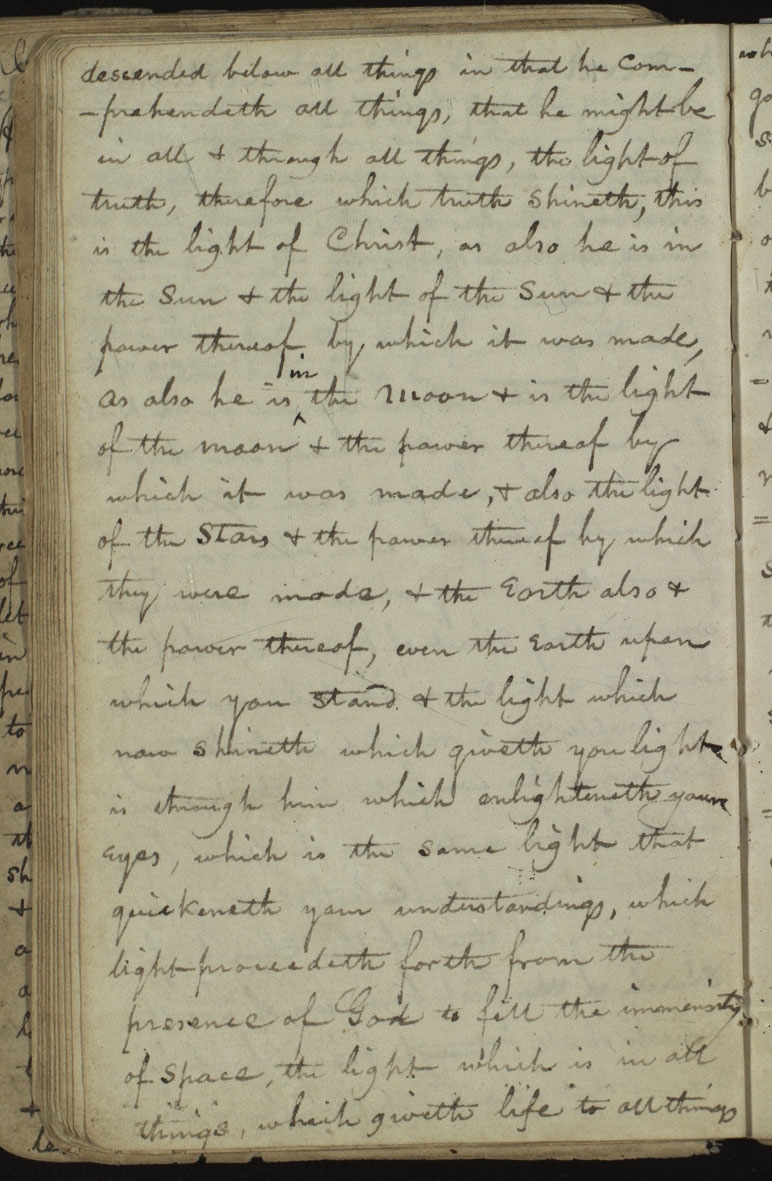 descended below all things in that he com-
-prehendeth all things, that he might be
in all & through all things, the light of
truth, therefore which truth shineth, this
is the light of Christ, as also he is in
the Sun & the light of the Sun & the
power thereof by which it was made,
as also he is in the Moon & is the light
of the moon & the power thereof by
which it was made, & also the light
of the Stars & the power thereof by which
they were made, & the Earth also &
the power thereof, even the Earth upon
which you stand & the light which
now shineth which giveth you light
is through him which enlighteneth your
Eyes, which is the same light that
quickeneth your understandings, which
light proceedeth forth from the
presence of God to fill the immensity
of Space, the light which is in all
things, which giveth life to all things